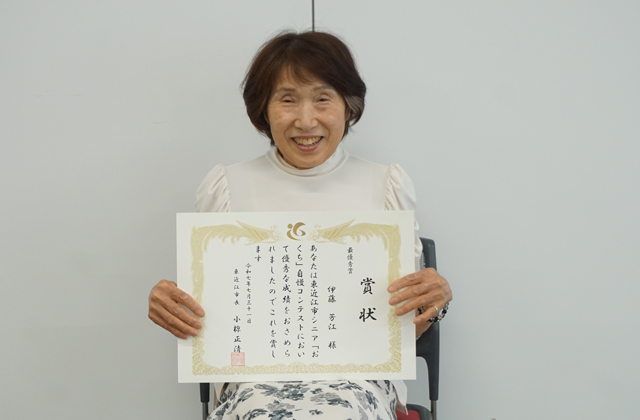 賞状
最優秀賞
伊藤 芳江 様
あなたは東近江市シニア「お
くち」自慢コンテストにおい
て優秀な成績をおさめら
れましたのでこれを賞し
ます
令和七年七月三十一日
東近江市長 小椋正清